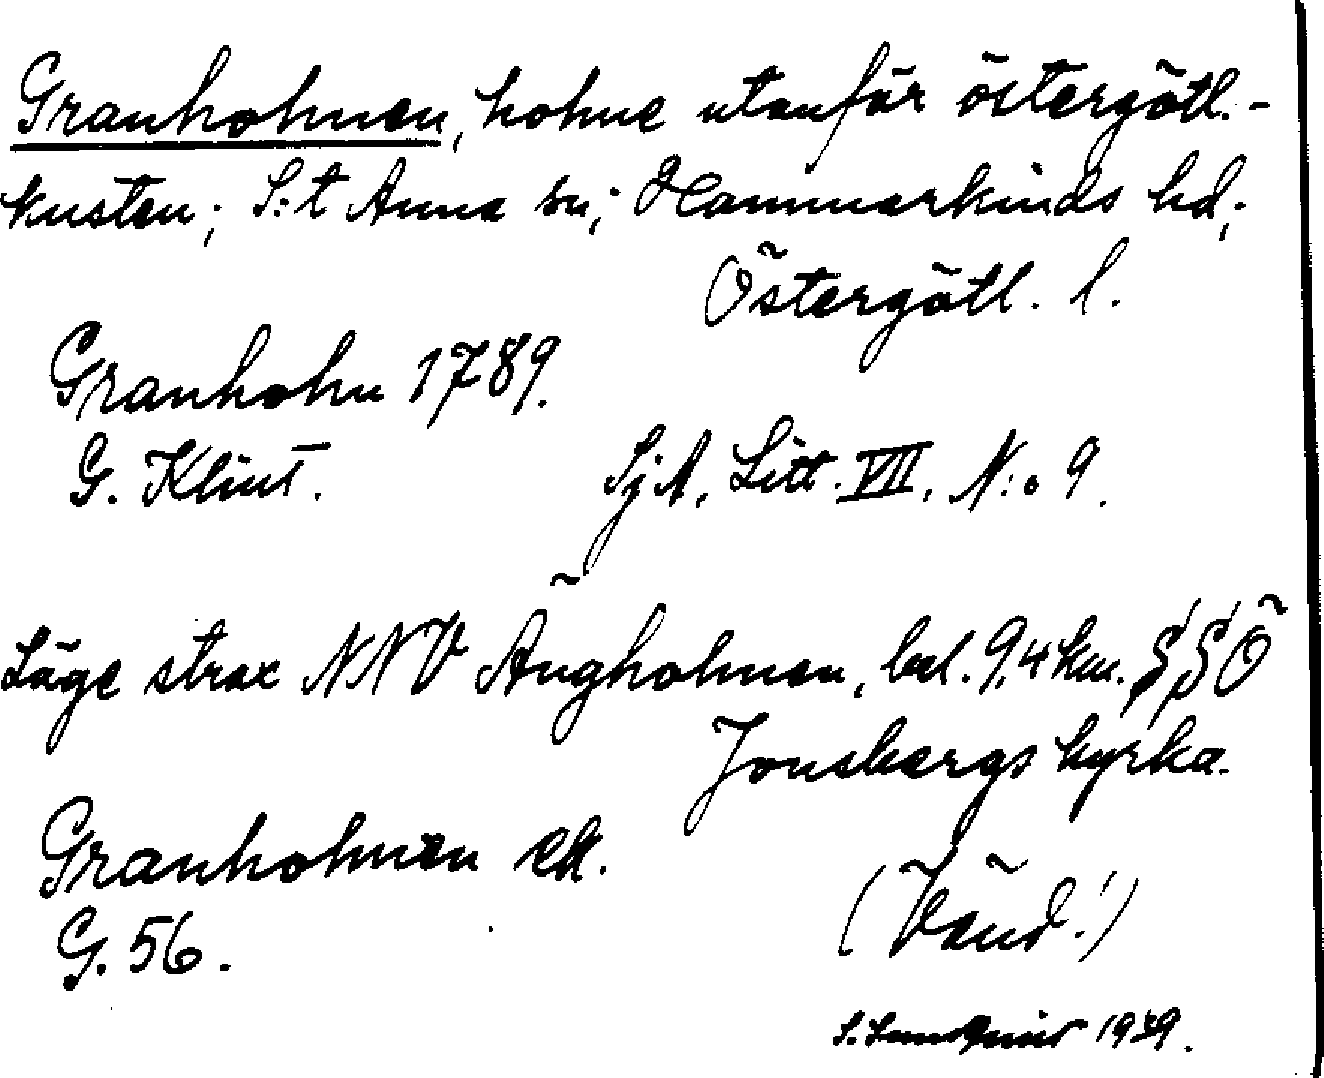 Granholmen, holme utanför östergötl.-
kusten; S:t Anna sn; Hammarkinds hd;
Östergötl. l.
Granholm 1789.
G. Klint. SjA, Litt. VII, N:o 9.
Läge strax NNV Ängholmen, bel. 9,4 km. SSÖ
Jonsbergs kyrka.
Granholmen ek.
G. 56.
(Vänd!)
S. Sundqvist 1939.